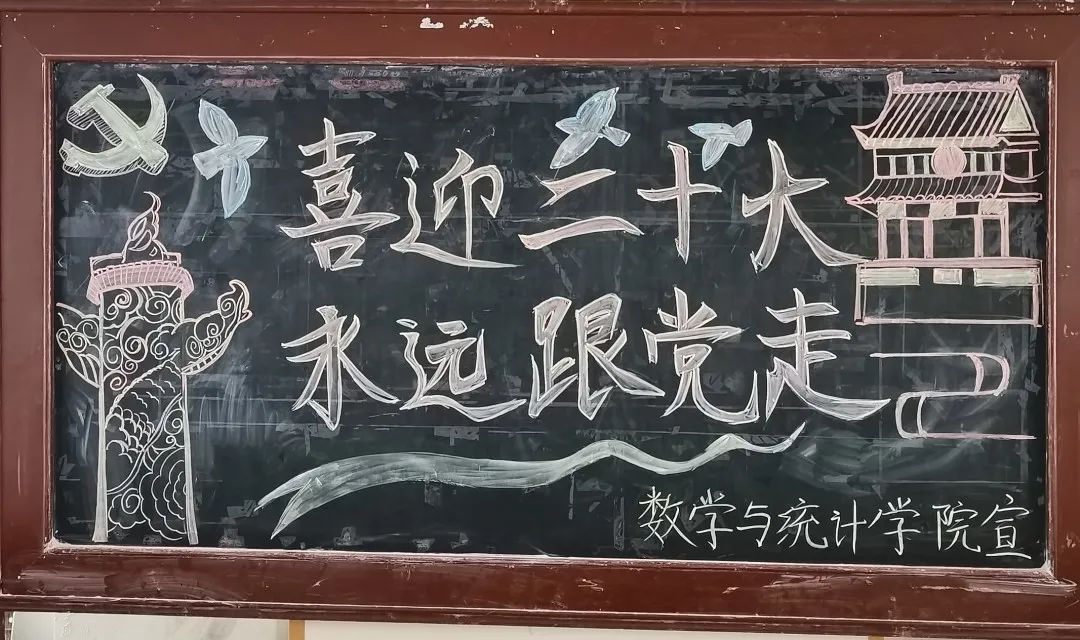 喜迎二十大
永远跟党走
数学与统计学院宣